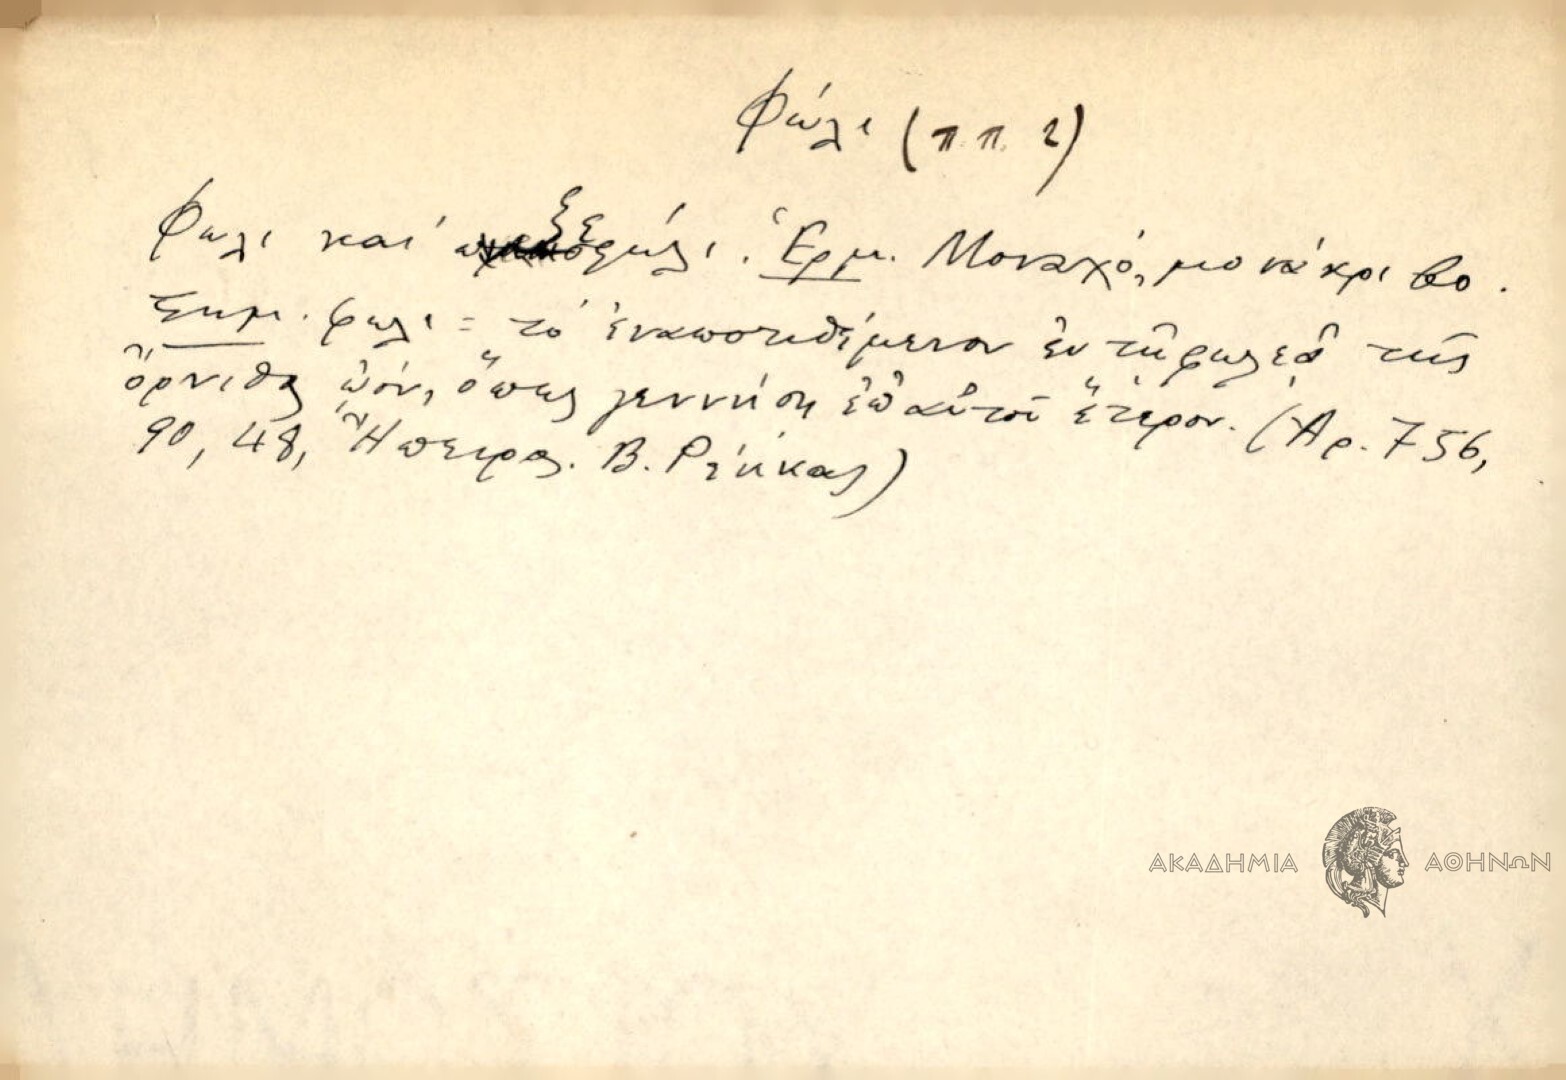 Φώλι (π.π. 2)
Φωλι και ξεφώλι. Ἑρμ. Μοναχό, μονάκριβο.
Σημ. φωλι = τὸ ἐναποτιθέμενον ἐν τῇ φωλεᾷ τῆς
ὄρνιθος ᾠόν, ὅπως γεννήσῃ ἐπ' αὐτοῦ ἕτερον. (Ἀρ. 756,
90, 48, Ἤπειρος. Β.
ΑΚΑΔΗΜΙΑ ΑΘΗΝΩΝ